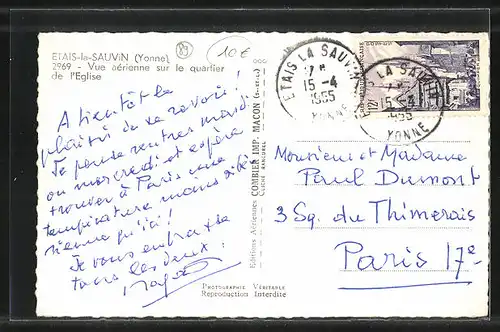 ETAIS-la-SAUVIN (Yonne)
2969 - Vue aérienne sur le quartier
de l'Eglise
10€
A bientôt le
plaisir de se revoir!
Je pense rentrer mardi
ou mercredi et espère
trouver à Paris une
température moins
qu'ici!
Je vous embrasse
tous les deux.
Editions Aériennes COMBIER IMP. MACON
PHOTOGRAPHIE VÉRITABLE
Reproduction Interdite
ETAIS LA SAUVIN
15-4
1955
YONNE
LA SAUVIN
15-4
1955
YONNE
12F
Monsieur et Madame
Paul Dumont
3 Sq. du Thimerais
Paris 17e